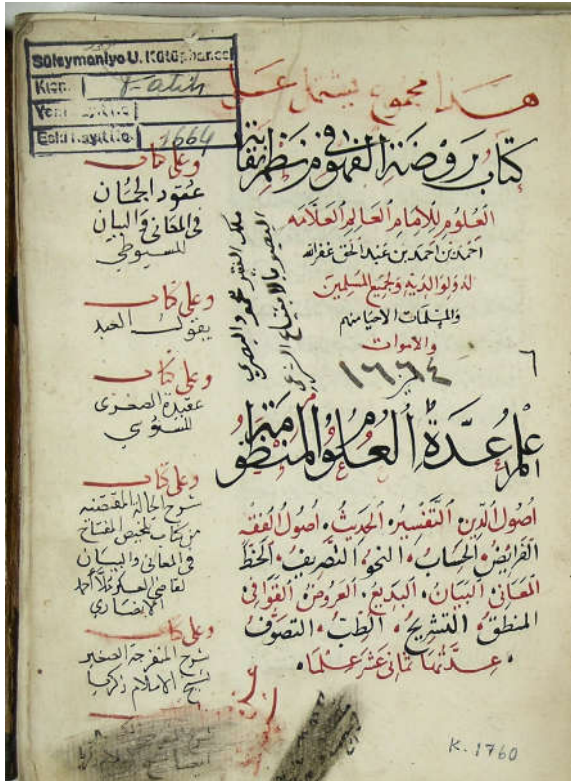 Süleymaniye U. Kütüphanesi
Kısmı Fatih
Yeni Kayıt No.
Eski Kayıt No. 1664
هذا مجموع يشتمل على
كتاب روضة الفهوم في نظم نقاية
العلوم للامام العالم العلامه
احمد بن احمد بن عبد الحق غفر الله
له ولوالديه ولجميع المسلمين
والمسلمات الاحيا منهم
والاموات
١٦٦٤
٦
اعلم عدة العلوم المنظومة
اصول الدين التفسير الحديث اصول الفقه
الفرايض الحساب النحو التصريف الخط
المعاني البيان البديع العروض القوافي
المنطق التشريح الطب التصوف
عدتها ثماني عشر علما
وعلى كتاب
عقود الجمان
في المعاني والبيان
للسيوطي
وعلى كتاب
يقول العبد
وعلى كتاب
عقيدة الصغرى
للسنوسي
وعلى كتاب
شرح الحاله المقتضيه
من كتاب تلخيص المفتاح
في المعاني والبيان
لقاضي العسكر
الانصاري
وعلى كتاب
شرح المنفرجة الصغير
لشيخ الاسلام زكريا
ملك الفقير محمود البصري
K. 1760